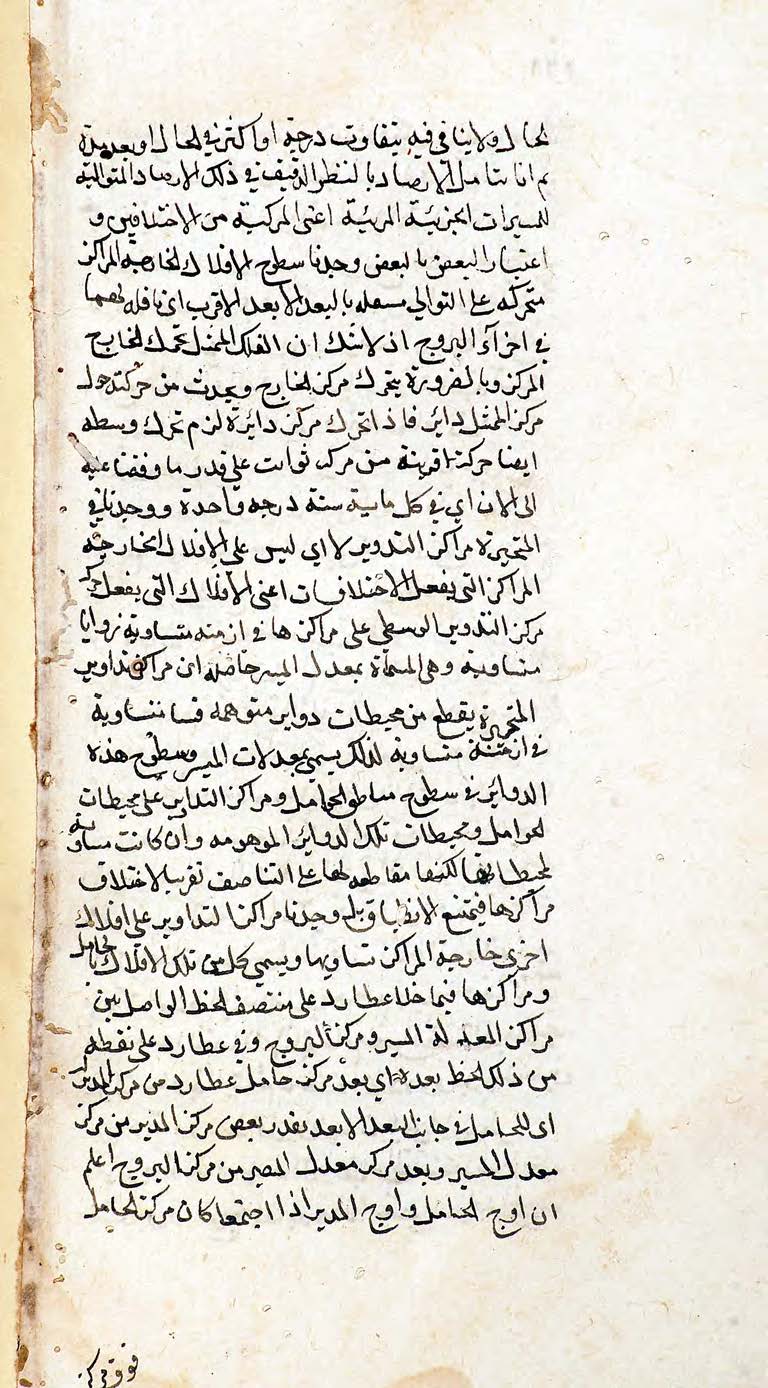 لحال ولا ينافي فيه بتفاوت درجة او اكثر في لحال او بعد مدة
ثم انا بتامل الارصاد بالنظر الدقيق في ذلك الارصاد المتوالية
للمسيرات الجزئية المرئية اعنى المركبة من الاختلافين و
اعتبار البعض بالبعض وجدنا سطوح الافلاك لخارجه المراكز
متحركه على التوالي بالبعد الابعد الاقرب اى ناقله لهما
في اجزآء البروج اذ لا شك ان الفلك الممثل تحرك لخارج
المركز وبالضرورة يتحرك مركز لخارج ويحدث من حركته حول
مركز الممثل دائر فاذا تحرك مركز دائرة لزم تحرك وسطه
ايضا حركة قريبة من حركه ثوابت على قدر ما وقفنا عليه
الى الان اي في كل ماية سنة درجه واحدة ووجدنا في
المتحيرة مراكز التدوير لا اي ليس على الافلاك الخارجة
المراكز التى يفعل الاختلافات اعنى الافلاك التى يفعل حركة
مركز التدوير الوسطى على مراكزها في ازمنه متساوية زوايا
متساوية وهى المسماة بمعدل المسير حاصله ان مراكز تداوير
المتحيرة يقطع من محيطات دواير متوهمه قسيا متساوية
في ازمنة متساوية لذلك يسمى بمعدلات المسير وسطوح هذه
الدوائر في سطوح مناطق لحوامل ومراكز التداوير على محيطات
لحوامل ومحيطات تلك الدوائر الموهومه وان كانت مساوية
لمحيطاتها لكنها مقاطعه لها على التناصف تقريبا لاختلاف
مراكزها فيمتنع الانطباق بل وجدنا مراكز التداوير على افلاك
اخرى خارجة المراكز تساويها ويسمى كل من تلك الافلاك بالحامل
ومراكزها فيما خلا عطارد على منتصف لخط الواصل بين
مراكز المعدلة المسير ومركز البروج وفي عطارد على نقطه
من ذلك لخط بعده اي بعد مركز حامل عطارد من مركز المدير
اى للحامل في جانب البعد الابعد بقدر بعد مركز المدير من مركز
معدل المسير وبعد مركز معدل المسير من مركز البروج اعلم
ان اوج لحامل واوج المدير اذا اجتمعا كان مركز لحامل
فوق مركز